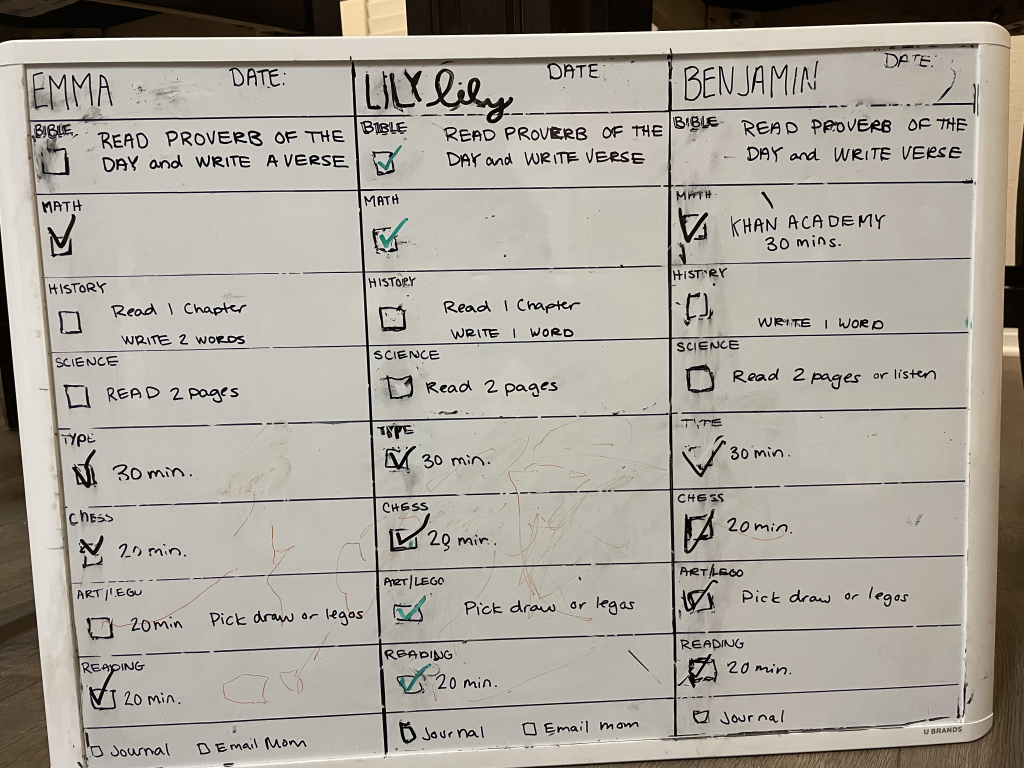 EMMA DATE:
BIBLE
READ PROVERB OF THE
DAY and WRITE A VERSE
MATH
HISTORY
Read 1 Chapter
WRITE 2 WORDS
SCIENCE
READ 2 pages
TYPE
30 min.
CHESS
20 min.
ART/LEGO
20min Pick draw or legos
READING
20 min.
Journal Email Mom
LILY lily DATE:
BIBLE
READ PROVERB OF THE
DAY and WRITE VERSE
MATH
HISTORY
Read 1 Chapter
WRITE 1 WORD
SCIENCE
Read 2 pages
TYPE
30 min.
CHESS
20 min.
ART/LEGO
Pick draw or legos
READING
20 min.
Journal Email mom
BENJAMIN DATE:
BIBLE
READ PROVERB OF THE
DAY and WRITE VERSE
MATH
KHAN ACADEMY
30 mins.
HISTORY
WRITE 1 WORD
SCIENCE
Read 2 pages or listen
TYPE
30 min.
CHESS
20 min.
ART/LEGO
Pick draw or legos
READING
20 min.
Journal
U BRANDS